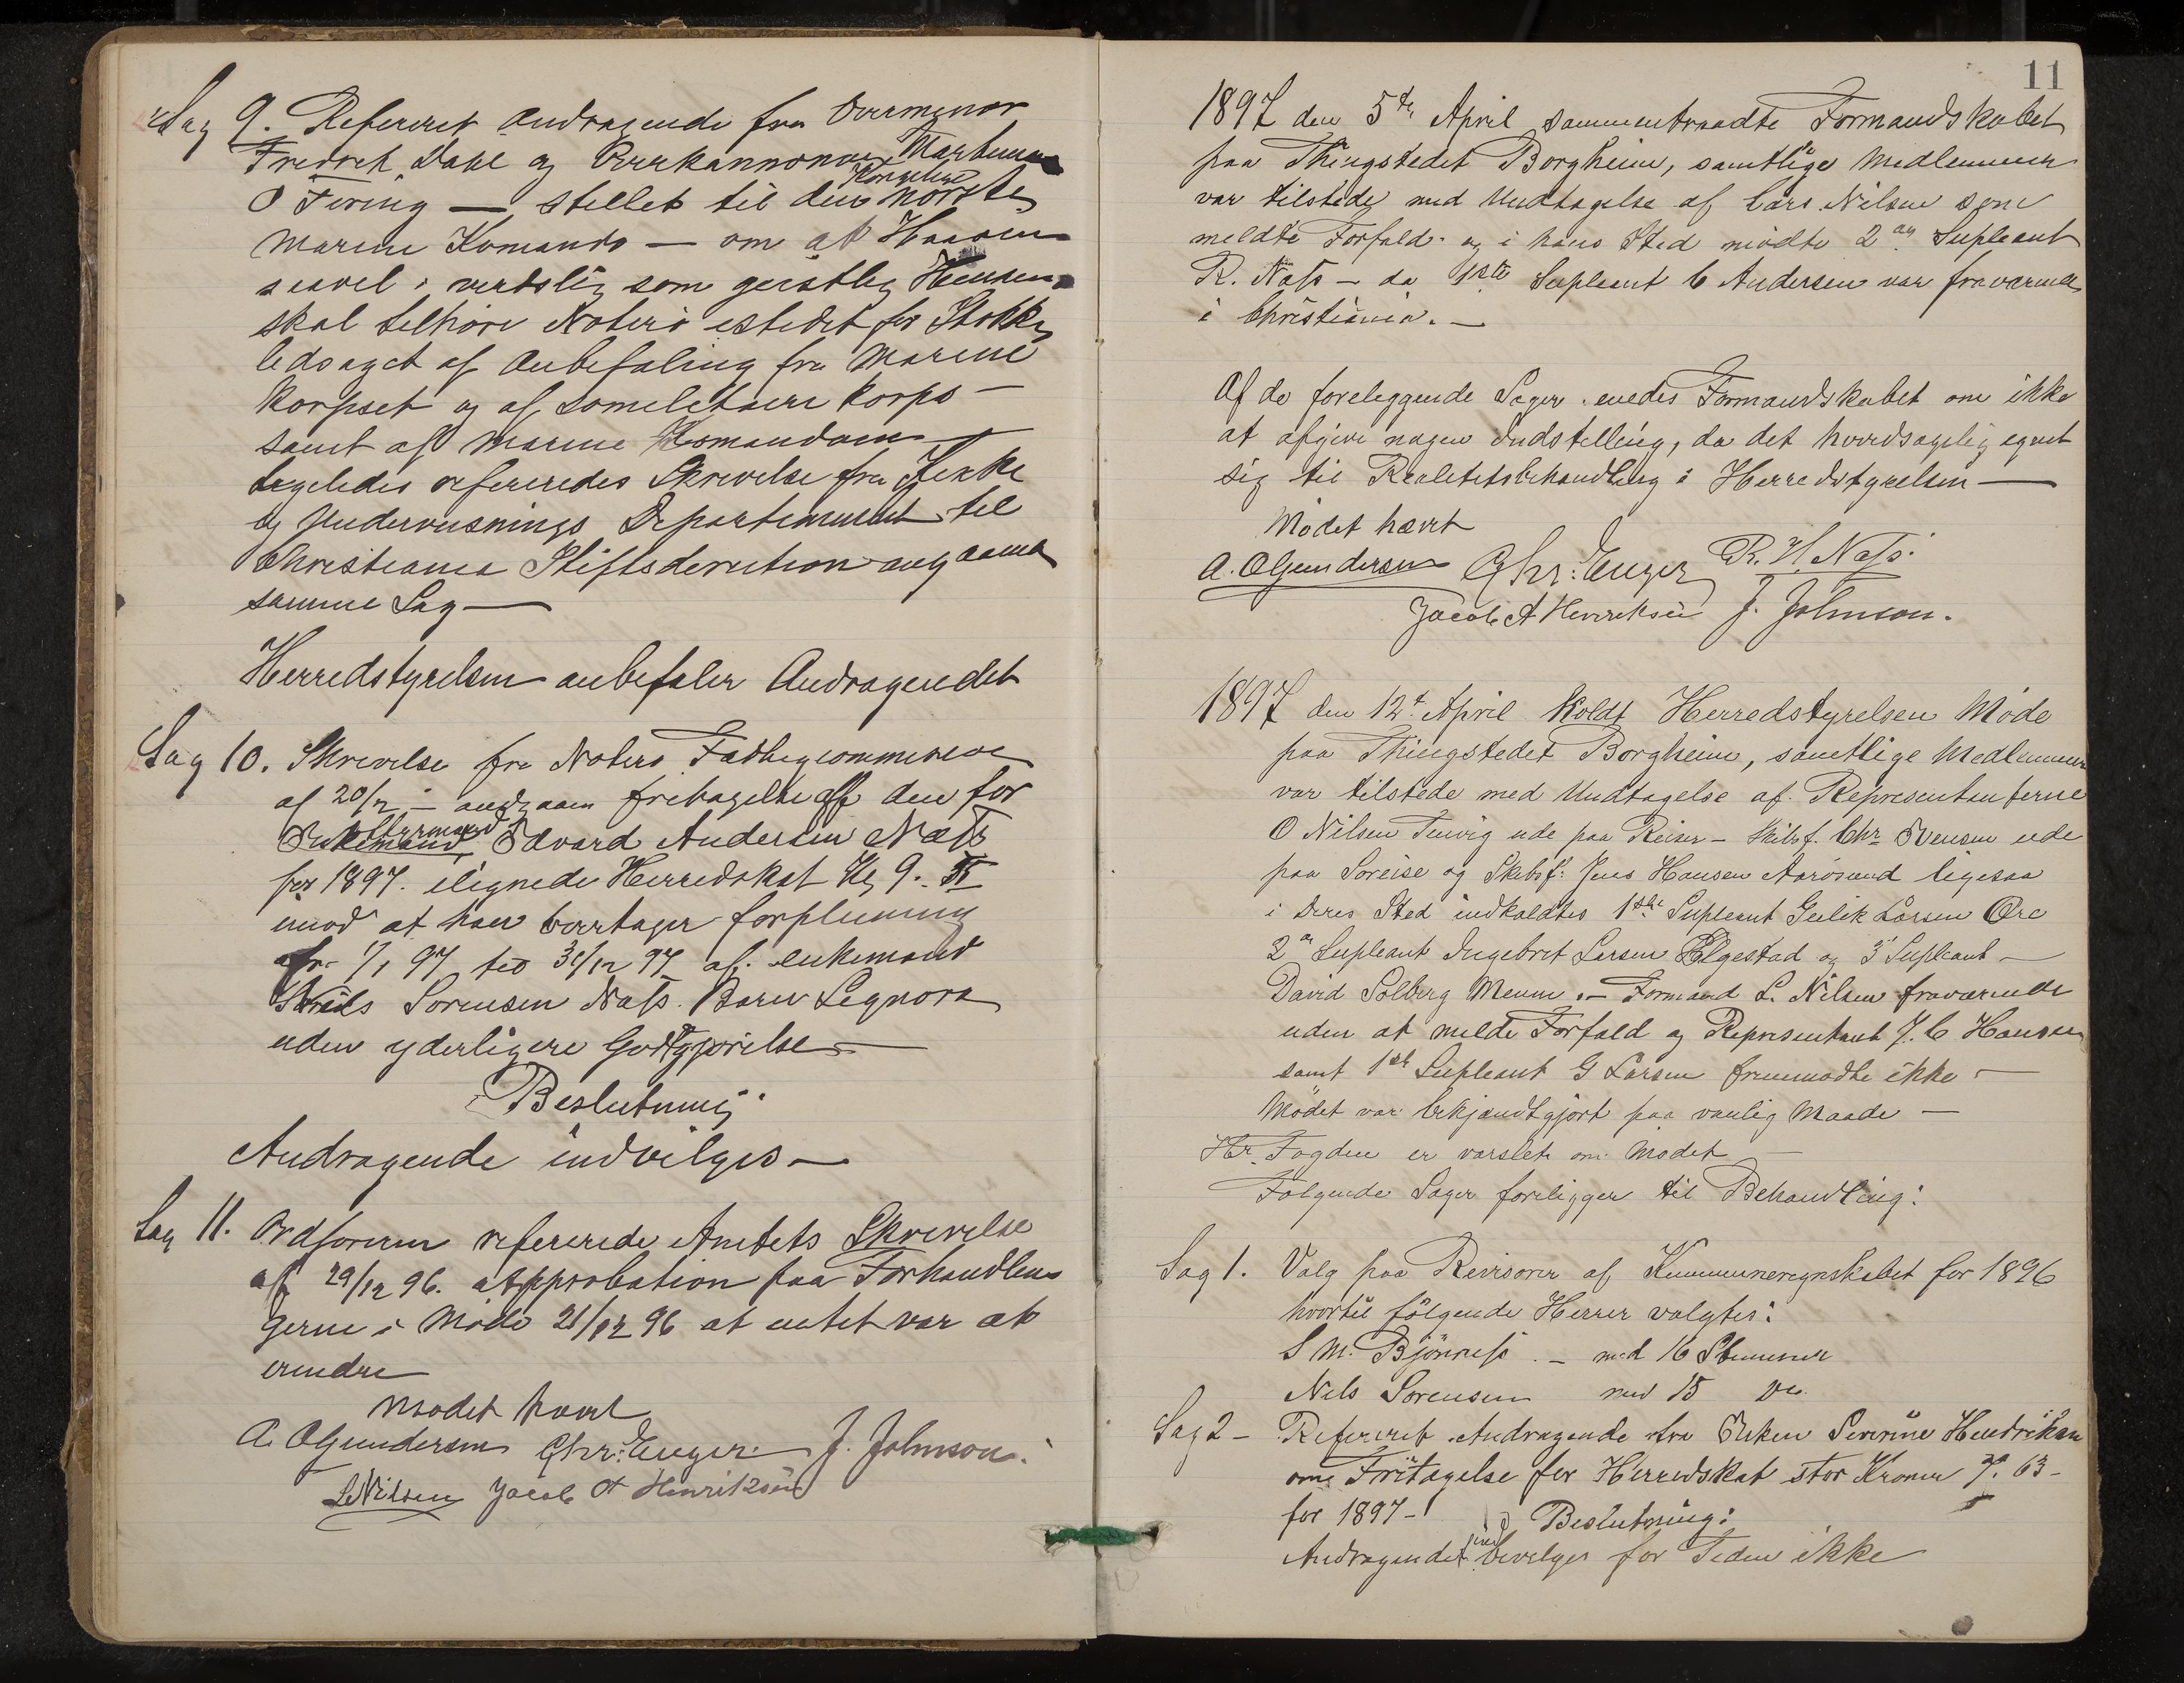 Sag 9. Refereret Andragende fra Overminør
Fredrik Dahl og Overkannoner
O Firing — stillet til den Kongelige norske
Marine Komando — om at Haaøen
saavel i verdslig som geistlig Hensen
skal tilhøre Nøterø istedet for Stokke
ledsaget af Anbefaling fra Marine
Korpset og af Korps —
samt af Marine Komandoen —
Ligeledes refereredes Skrivelse fra Kirke
og Undervisnings Departementet til
Christiania Stiftsdirektion angaaende
samme Sag —
Herredstyrelsen anbefaler Andragendet
Sag 10. Skrivelse fra Nøterø Fattigcommission
af 20/2 — angaaen fritagelse af den for
Styrmand Edvard Andersen Næss
for 1897. ilignede Herredskat Kr 9.
imod at han overtager forpleining
fra 1/1 97 til 31/12 97 af enkemand
Nils Sørensen Næss. Barn Signora
uden yderligere Godtgjørelse —
Beslutning:
Andragende indvilges —
Sag 11. Ordføreren refererede Amtets Skrivelse
af 29/12 96. approbation paa Forhandlin
gerne i Møde 21/12 96 at intet var at
erindre
Mødet hævet
A. OGundersen Chr: Enger. J. Johnson.
LNilsen Jacob A Henriksen
11
1897 den 5te April sammentraadte Formandskabet
paa Thingstedet Borgheim, samtlige Medlemmer
var tilstede med Undtagelse af Lars Nilsen som
meldte Forfald og i hans Sted mødte 2den Supleant
R. Næss — da 1ste Supleant C Andersen var fraværende
i Christiania. —
Af de foreliggende Sager enedes Formandskabet om ikke
at afgive nogen Indstilling, da det hovedsagelig egnet
sig til Realitetsbehandling i Herredstyrelsen —
Mødet hævet
A. OGundersen Chr: Enger R. H. Næss.
Jacob A Henriksen J. Johnson.
1897 den 12te April holdt Herredstyrelsen Møde
paa Thingstedet Borgheim, samtlige Medlemmer
var tilstede med Undtagelse af Representanterne
O Nilsen Tenvig ude paa Reiser — Skibsf. Chr Svensen ude
paa Søreise og Skibsf: Jens Hansen Aarøsund ligesaa
i Deres Sted indkaldtes 1ste Supleant Gulik Larsen Øre
2den Supleant Ingebret Larsen Elgestad og 3die Supleant —
David Solberg Meum. — Formand L. Nilsen fraværende
uden at melde Forfald og Representant J. C Hansen
samt 1ste Supleant G Larsen fremmødte ikke —
Mødet var bekjændtgjort paa vanlig Maade —
Hr. Fogden er varslet om Mødet —
Følgende Sager foreligger til Behandling:
Sag 1. Valg paa Revisorer af Kommuneregnskabet for 1896
hvortil følgende Herrer valgtes:
S M. Bjönness. — med 16 Stemmer
Nils Sørensen med 15 Do.
Sag 2 — Refereret Andragende fra Enken Severine Hendriksen
om Fritagelse for Herredskat stor Kroner 7. 63 —
for 1897 — Beslutning:
Andragendet indbevilges for Tiden ikke